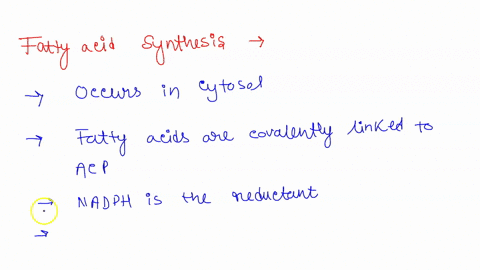 Fatty acid synthesis →
→ Occurs in cytosol
→ Fatty acids are covalently linked to
ACP
→ NADPH is the reductant
→